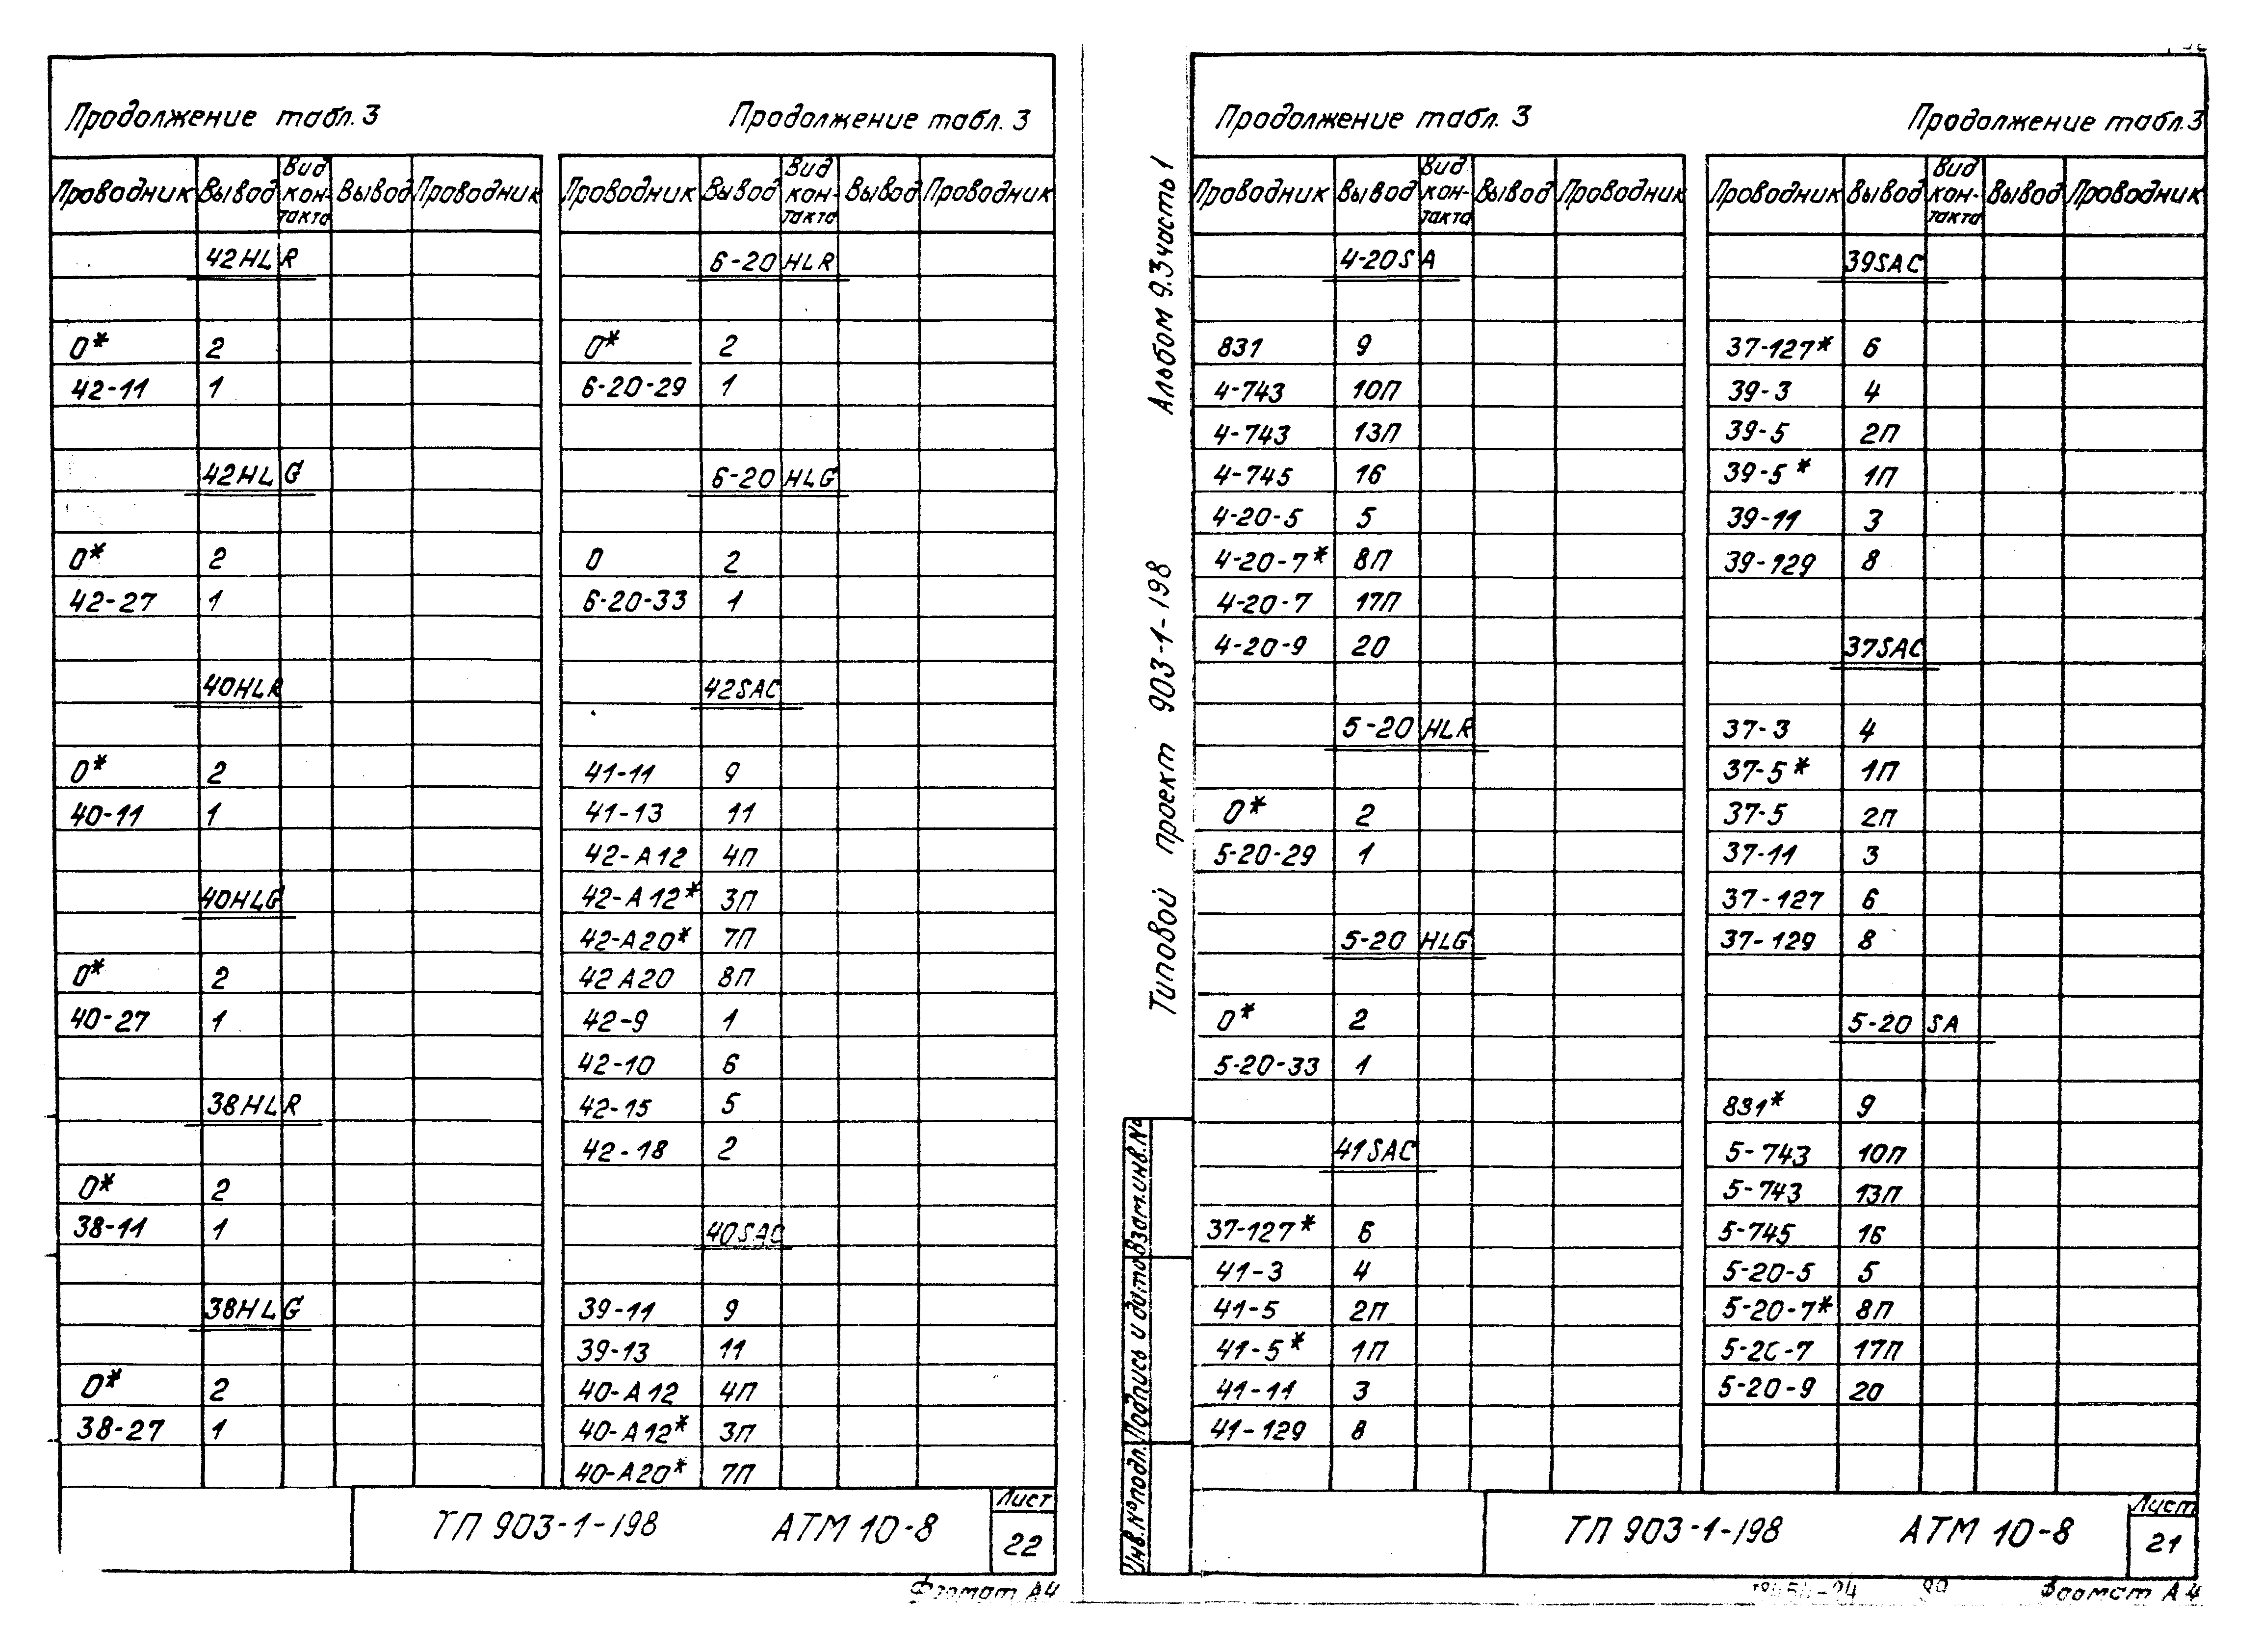 Продолжение табл. 3
Проводник Вывод Вид кон-такта Вывод Проводник
42HLR
0* 2
42-11 1
42HLG
0* 2
42-27 1
40HLR
0* 2
40-11 1
40HLG
0* 2
40-27 1
38HLR
0* 2
38-11 1
38HLG
0* 2
38-27 1
Продолжение табл. 3
Проводник Вывод Вид кон-такта Вывод Проводник
6-20HLR
0* 2
6-20-29 1
6-20HLG
0 2
6-20-33 1
42SAC
41-11 9
41-13 11
42-A12 4П
42-A12* 3П
42-A20* 7П
42 A20 8П
42-9 1
42-10 6
42-15 5
42-18 2
40SAC
39-11 9
39-13 11
40-A12 4П
40-A12* 3П
40-A20* 7П
ТП 903-1-198 АТМ 10-8
Лист
22
Формат А4
Альбом 9.3 часть 1
Типовой проект 903-1-198
Взам.инв.№
Подпись и дата
Инв.№ подл.
Продолжение табл. 3
Проводник Вывод Вид кон-такта Вывод Проводник
4-20SA
831 9
4-743 10П
4-743 13П
4-745 16
4-20-5 5
4-20-7* 8П
4-20-7 17П
4-20-9 20
5-20 HLR
0* 2
5-20-29 1
5-20 HLG
0* 2
5-20-33 1
41SAC
37-127* 6
41-3 4
41-5 2П
41-5* 1П
41-11 3
41-129 8
Продолжение табл. 3
Проводник Вывод Вид кон-такта Вывод Проводник
39SAC
37-127* 6
39-3 4
39-5 2П
39-5* 1П
39-11 3
39-129 8
37SAC
37-3 4
37-5* 1П
37-5 2П
37-11 3
37-127 6
37-129 8
5-20 SA
831* 9
5-743 10П
5-743 13П
5-745 16
5-20-5 5
5-20-7* 8П
5-20-7 17П
5-20-9 20
ТП 903-1-198 АТМ 10-8
Лист
21
Формат А4